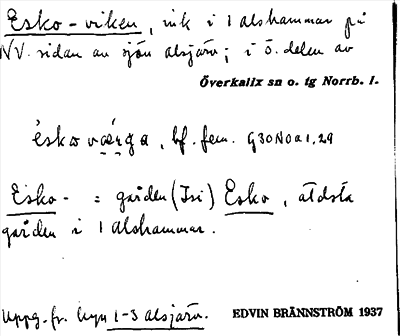 Esko-viken, vik i 1 alshammar på
NV. sidan av sjön alsjärv; i ö. delen av
Överkalix sn o. tg Norrb. l.
bf. fem. G30N0a1,29
Esko- = gården (Isi) Esko, äldsta
gården i 1 alshammar.
Uppg. fr. hyn 1-3 alsjärv.
EDVIN BRÄNNSTRÖM 1937